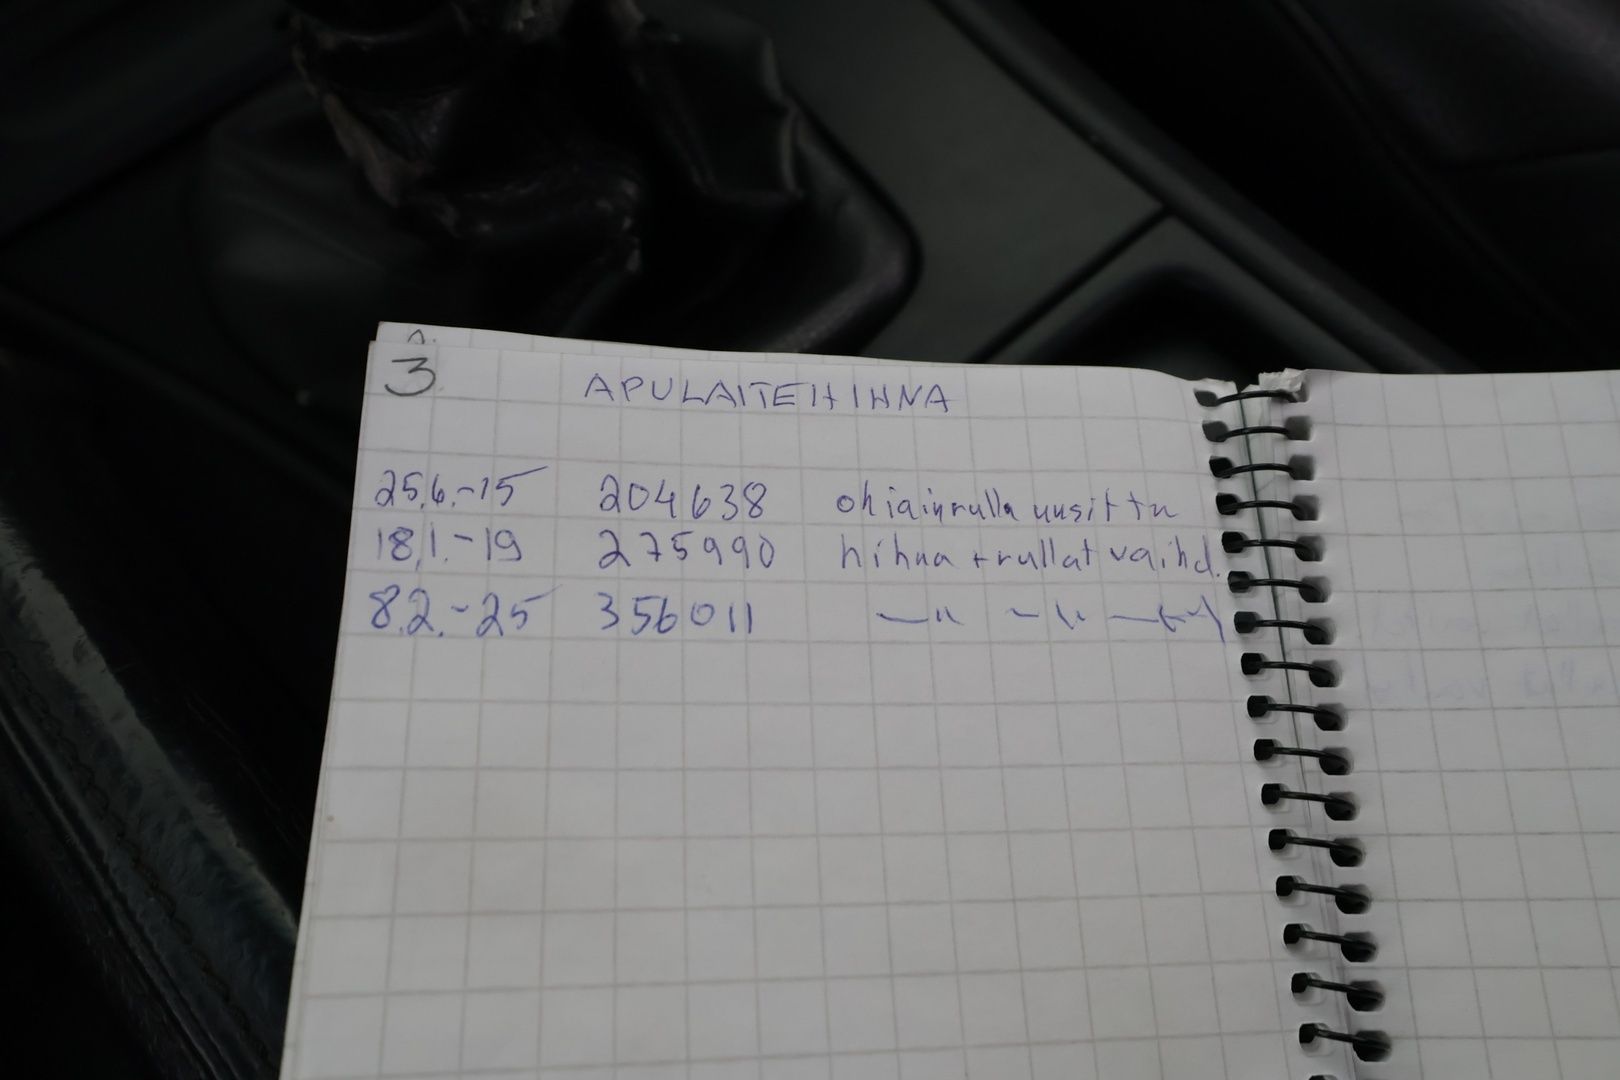 3. APULAITEHIHNA
25.6.-15 204638 ohjainrulla uusittu
18.1.-19 275990 hihna + rullat vaihd.
8.2.-25 356011 —"— —"— —"—